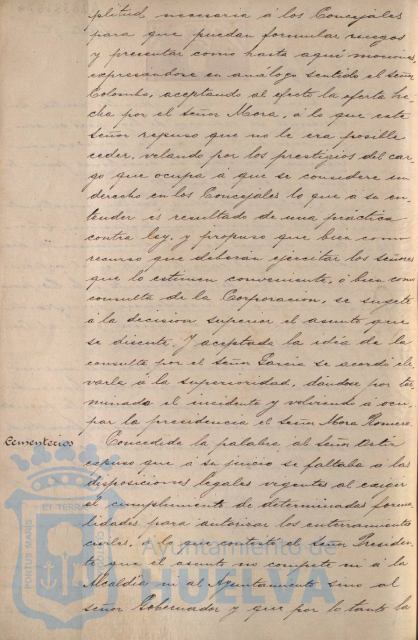 plitud necesaria á los Concejales
para que puedan formular ruegos
y presentar como hasta aquí mociones,
expresandose en análogo sentido el señor
Colombo, aceptando al efecto la oferta he-
cha por el señor Mora, á lo que este
señor repuso que no le era posible
ceder, velando por los prestigios del car-
go que ocupa á que se considere un
derecho en los Concejales lo que á su en-
tender es resultado de una práctica
contra ley, y propuso que bien como
recurso que deberán ejercitar los señores
que lo estimen conveniente, ó bien como
consulta de la Corporación, se sujete
á la decision superior el asunto que
se discute. Y aceptada la idea de la
consulta por el señor Garcia se acordó ele-
varla á la superioridad, dándose por ter-
minado el incidente y volviendo á ocu-
par la presidencia el Señor Mora Romero.
Cementerios
Concedida la palabra al Señor
expuso que á su juicio se faltaba á las
disposiciones legales vigentes al exigir
el cumplimiento de determinadas forma-
lidades para autorizar los enterramientos
civiles, á lo que contestó el Señor Presiden-
te que el asunto no compete ni á la
Alcaldia ni al Ayuntamiento sino al
señor Gobernador y que por lo tanto la
Ayuntamiento de
HUELVA
PORTUS MARIS
ET TERRAE
CUSTODIA